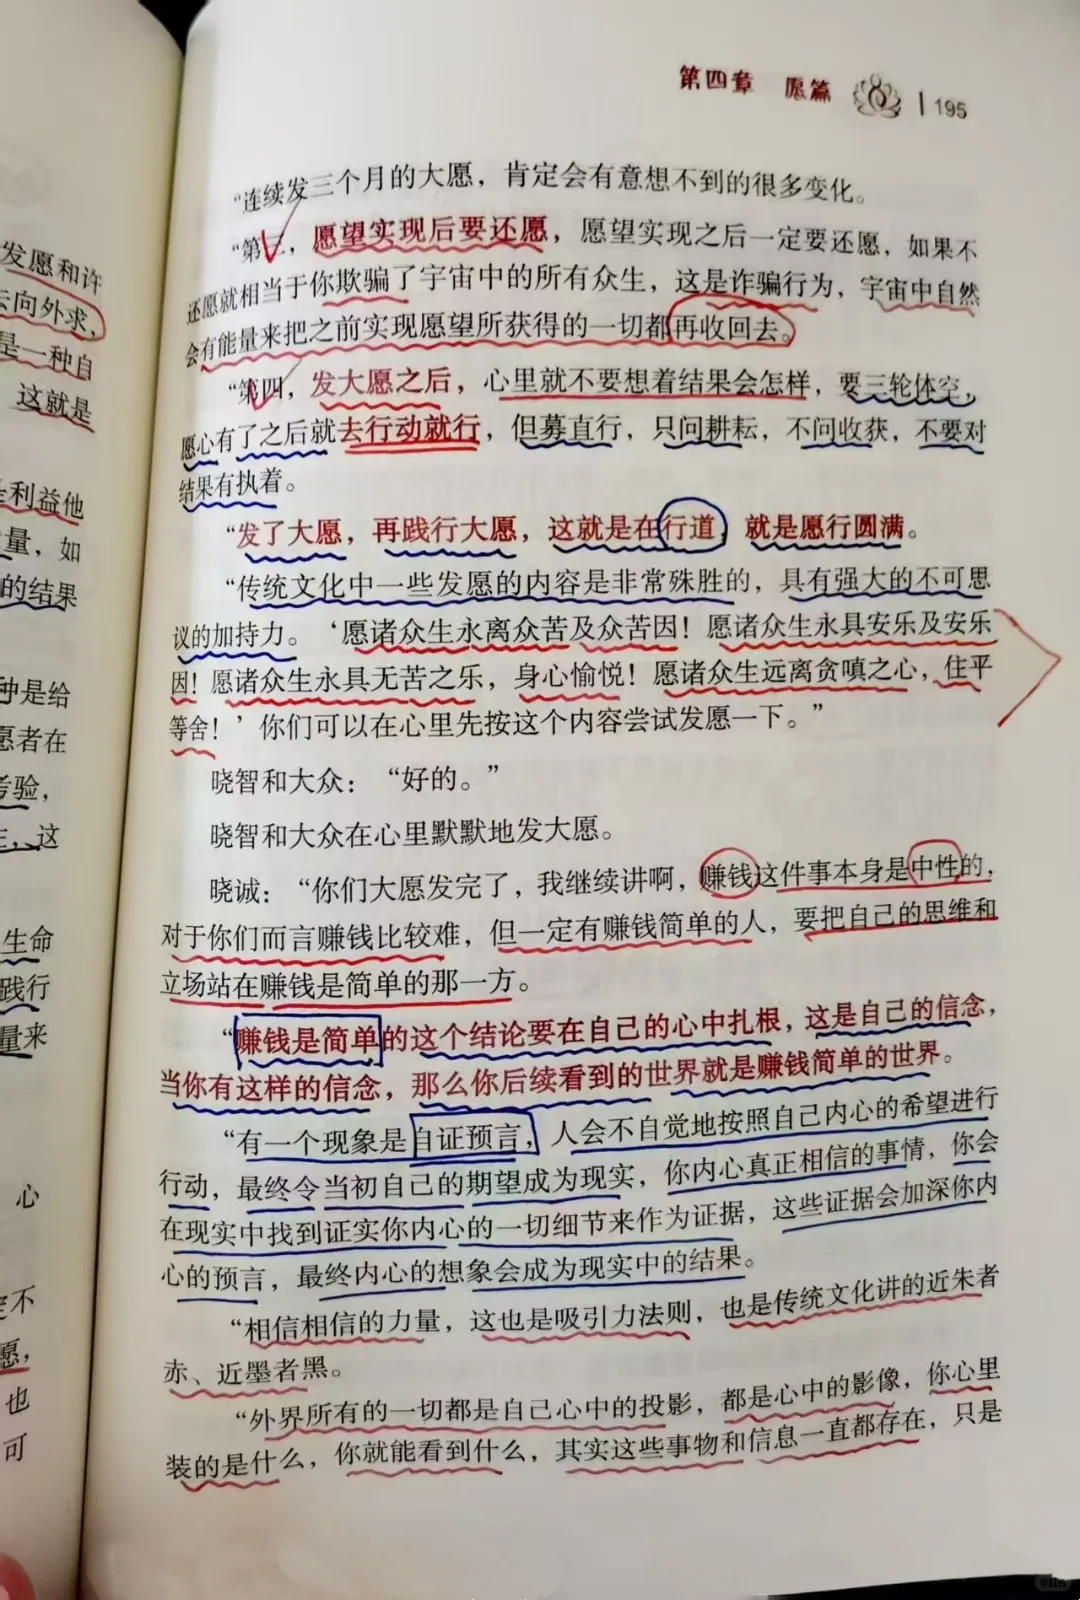 发愿和许
去向外求，
是一种自
这就是
利益他
量，如
的结果
种是给
愿者在
考验，
这
生命
践行
量来
心
定不
愿，
也
可
第四章 愿篇 | 195
“连续发三个月的大愿，肯定会有意想不到的很多变化。
“第三，愿望实现后要还愿，愿望实现之后一定要还愿，如果不
还愿就相当于你欺骗了宇宙中的所有众生，这是诈骗行为，宇宙中自然
会有能量来把之前实现愿望所获得的一切都再收回去。
“第四，发大愿之后，心里就不要想着结果会怎样，要三轮体空，
愿心有了之后就去行动就行，但募直行，只问耕耘，不问收获，不要对
结果有执着。
“发了大愿，再践行大愿，这就是在行道，就是愿行圆满。
“传统文化中一些发愿的内容是非常殊胜的，具有强大的不可思
议的加持力。‘愿诸众生永离众苦及众苦因！愿诸众生永具安乐及安乐
因！愿诸众生永具无苦之乐，身心愉悦！愿诸众生远离贪嗔之心，住平
等舍！’你们可以在心里先按这个内容尝试发愿一下。”
晓智和大众：“好的。”
晓智和大众在心里默默地发大愿。
晓诚：“你们大愿发完了，我继续讲啊，赚钱这件事本身是中性的，
对于你们而言赚钱比较难，但一定有赚钱简单的人，要把自己的思维和
立场站在赚钱是简单的那一方。
“赚钱是简单的这个结论要在自己的心中扎根，这是自己的信念，
当你有这样的信念，那么你后续看到的世界就是赚钱简单的世界。
“有一个现象是自证预言，人会不自觉地按照自己内心的希望进行
行动，最终令当初自己的期望成为现实，你内心真正相信的事情，你会
在现实中找到证实你内心的一切细节来作为证据，这些证据会加深你内
心的预言，最终内心的想象会成为现实中的结果。
“相信相信的力量，这也是吸引力法则，也是传统文化讲的近朱者
赤、近墨者黑。
“外界所有的一切都是自己心中的投影，都是心中的影像，你心里
装的是什么，你就能看到什么，其实这些事物和信息一直都存在，只是